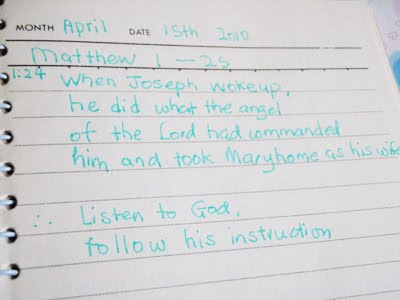 MONTH April DATE 15th 2010
Matthew 1 - 25
1:24 When Joseph wokeup,
he did what the angel
of the Lord had commanded
him and took Mary home as his wife
∴ Listen to God,
follow his instruction